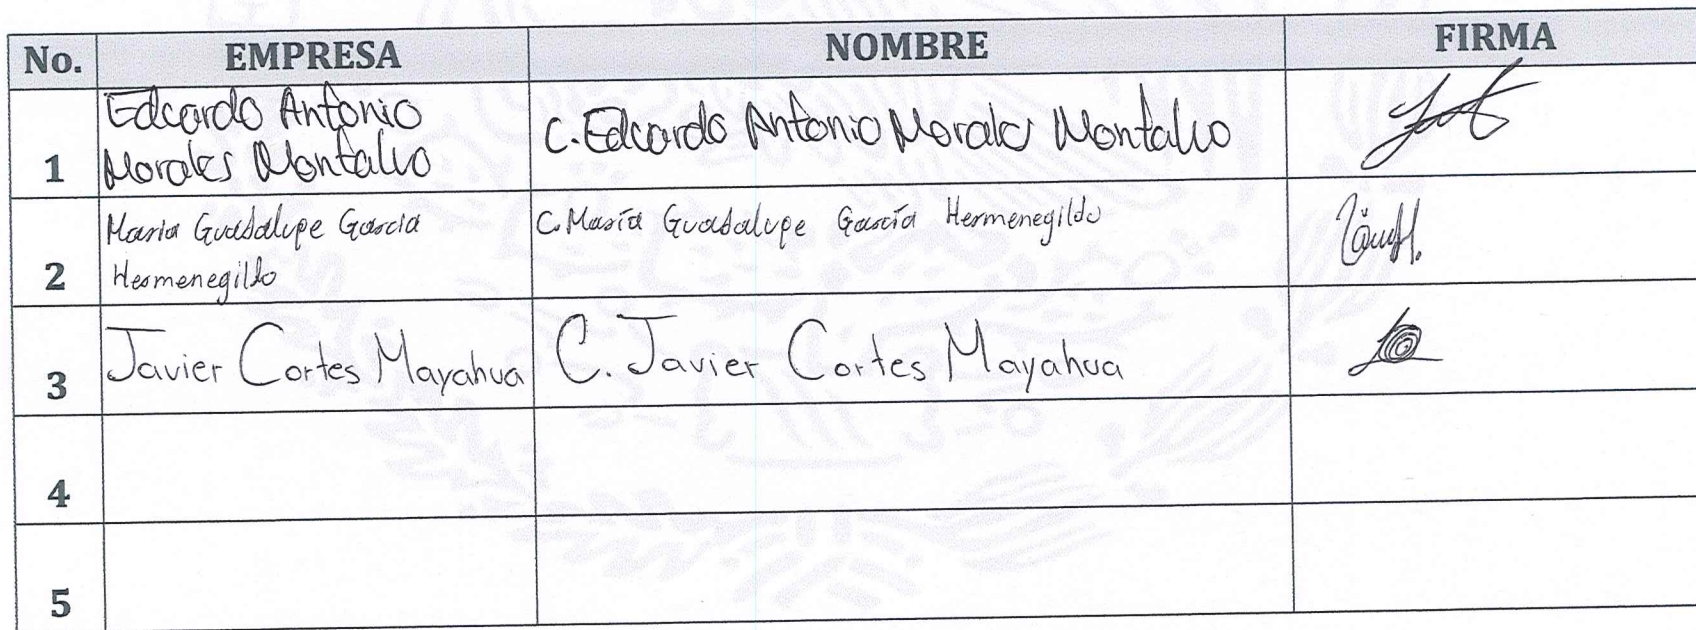 No. EMPRESA NOMBRE FIRMA
Edcardo Antonio
Morales Montalvo
1 C. Edcardo Antonio Morales Montalvo
Maria Guadalupe García
Hermenegildo
2 C. María Guadalupe García Hermenegildo
3 Javier Cortes Mayahua C. Javier Cortes Mayahua
4
5